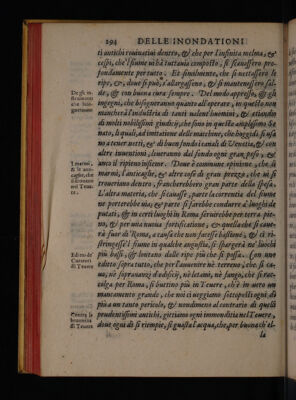 294 DELLE INONDATIONI
ti antichi rouinatiui dentro, & che per l'infinita melma, &
cespi, che'l fiume vi hà tuttauia composto, si scauassero pro-
fondamente per tutto. Et similmente, che si nettassero le
ripe, &, doue si può, s'allargassero, & si mantenessero sal-
de, & con buona cura sempre. Del modo appresso, & gli
ingegni, che bisogneranno quanto all'operare, in questo non
mancherà l'industria di tanti valent'huomini, & essendo
di molti nobilissimi giudicij, che sono in questo amplissimo Se
nato, li quali, ad imitatione delle machine, che hoggidì si vsa
no a tener netti, & di buon fondo i canali di Venetia, & con
altre inuentioni, leueranno dal fondo ogni gran peso, &
anco il ripieno insieme. Doue è commune opinione, che di
marmi, l'anticaglie, & altre cose di gran prezzo, che iui si
troueriano dentro, francherebbono gran parte della spesa.
L'altra materia, che si cauasse, parte la corrente del fiume
ne porterebbe via, & parte si farebbe condurre à luoghi de
putati, & in certi luoghi in Roma seruirebbe per terra pie-
no, & per vna nuoua fortificatione, & quella che si caue-
rà fuor di Roma, caso che non facesse bastione, & ci ri-
stringesse'l fiume in qualche angustia, si spargerà ne' luochi
più bassi, & lontano dalle ripe più che si possa. Con vno
editto sopra tutto, che per l'auuenire nè terreno, che si ca-
ua, nè soprauanzi d'edificij, nè letami, nè fango, che si rac-
colga per Roma, si buttino più in Teuere, ch'è in vero vn
mancamento grande, che noi ci veggiamo sottoposti ogni dì
più a vn tanto pericolo, & nondimeno al contrario di quelli
prudentissimi antichi, gittiamo ogni immonditia nel Teuere,
doue ogni dì si riempie, si guasta l'acqua, che, per buona ch'el-
la
Editto de'
Curatori
di Teuere